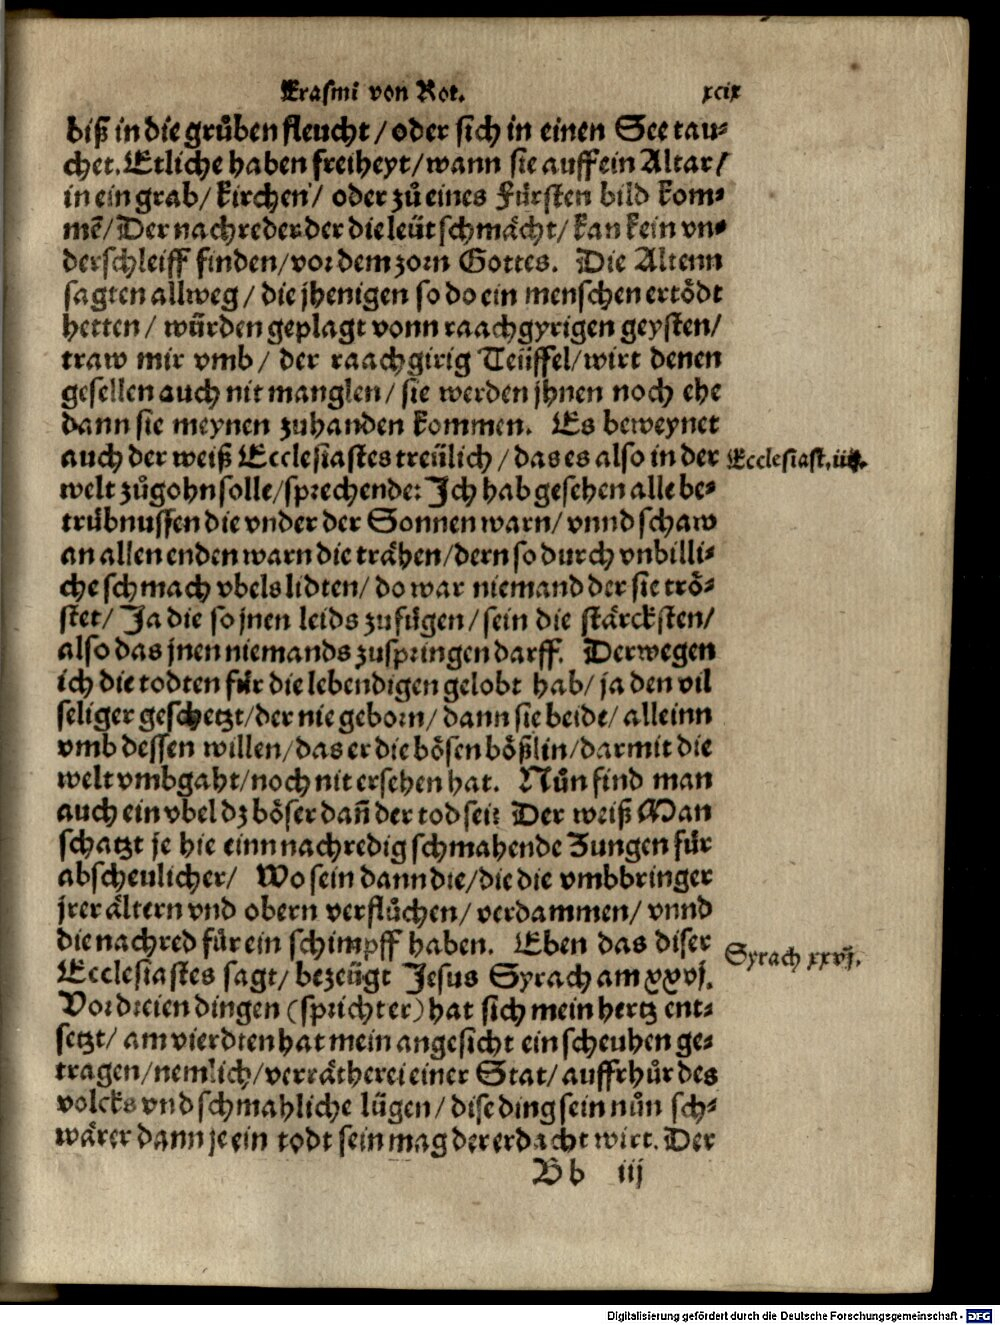 Erasmi von Rot. xcix
biß in die gruͦben fleucht / oder sich in einen See tau⸗
chet. Etliche haben freiheyt / wann sie auff ein Altar /
in ein grab / kirchen / oder zuͦ eines Fürsten bild kom⸗
mẽ / Der nachreder der die leüt schmächt / kan kein vn⸗
derschleiff finden / vor dem zorn Gottes. Die Altenn
sagten allweg / die jhenigen so do ein menschen ertödt
hetten / würden geplagt vonn raachgyrigen geysten /
traw mir vmb / der raachgirig Teüffel / wirt denen
gesellen auch nit manglen / sie werden jhnen noch ehe
dann sie meynen zuhanden kommen. Es beweynet
auch der weiß Ecclesiastes treülich / das es also in der
Ecclesiast. iiij.
welt zuͦgohn solle / sprechende: Ich hab gesehen alle be⸗
trübnussen die vnder der Sonnen warn / vnnd schaw
an allen enden warn die trähen / dern so durch vnbilli⸗
che schmach vbels lidten / do war niemand der sie trö⸗
stet / Ja die so jnen leids zufügen / sein die stärcksten /
also das jnen niemands zuspringen darff. Derwegen
ich die todten für die lebendigen gelobt hab / ja den vil
seliger geschetzt / der nie geborn / dann sie beide / alleinn
vmb dessen willen / das er die bösen bößlin / darmit die
welt vmbgaht / noch nit ersehen hat. Nuͦn find man
auch ein vbel dz böser dañ der tod sei: Der weiß Man
schatzt je hie einn nachredig schmahende Zungen für
abscheulicher / Wo sein dann die / die die vmbbringer
jrer ältern vnd obern verfluͦchen / verdammen / vnnd
die nachred für ein schimpff haben. Eben das diser
Syrach xxvj.
Ecclesiastes sagt / bezeügt Jesus Syrach am xxvj.
Vor dreien dingen (spricht er) hat sich mein hertz ent⸗
setzt / am vierdten hat mein angesicht ein scheuhen ge⸗
tragen / nemlich / verrätherei einer Stat / auffrhuͦr des
volcks vnd schmahliche lügen / dise ding sein nuͦn sch⸗
wärer dann je ein todt sein mag der erdacht wirt. Der
Bb iij
Digitalisierung gefördert durch die Deutsche Forschungsgemeinschaft - DFG